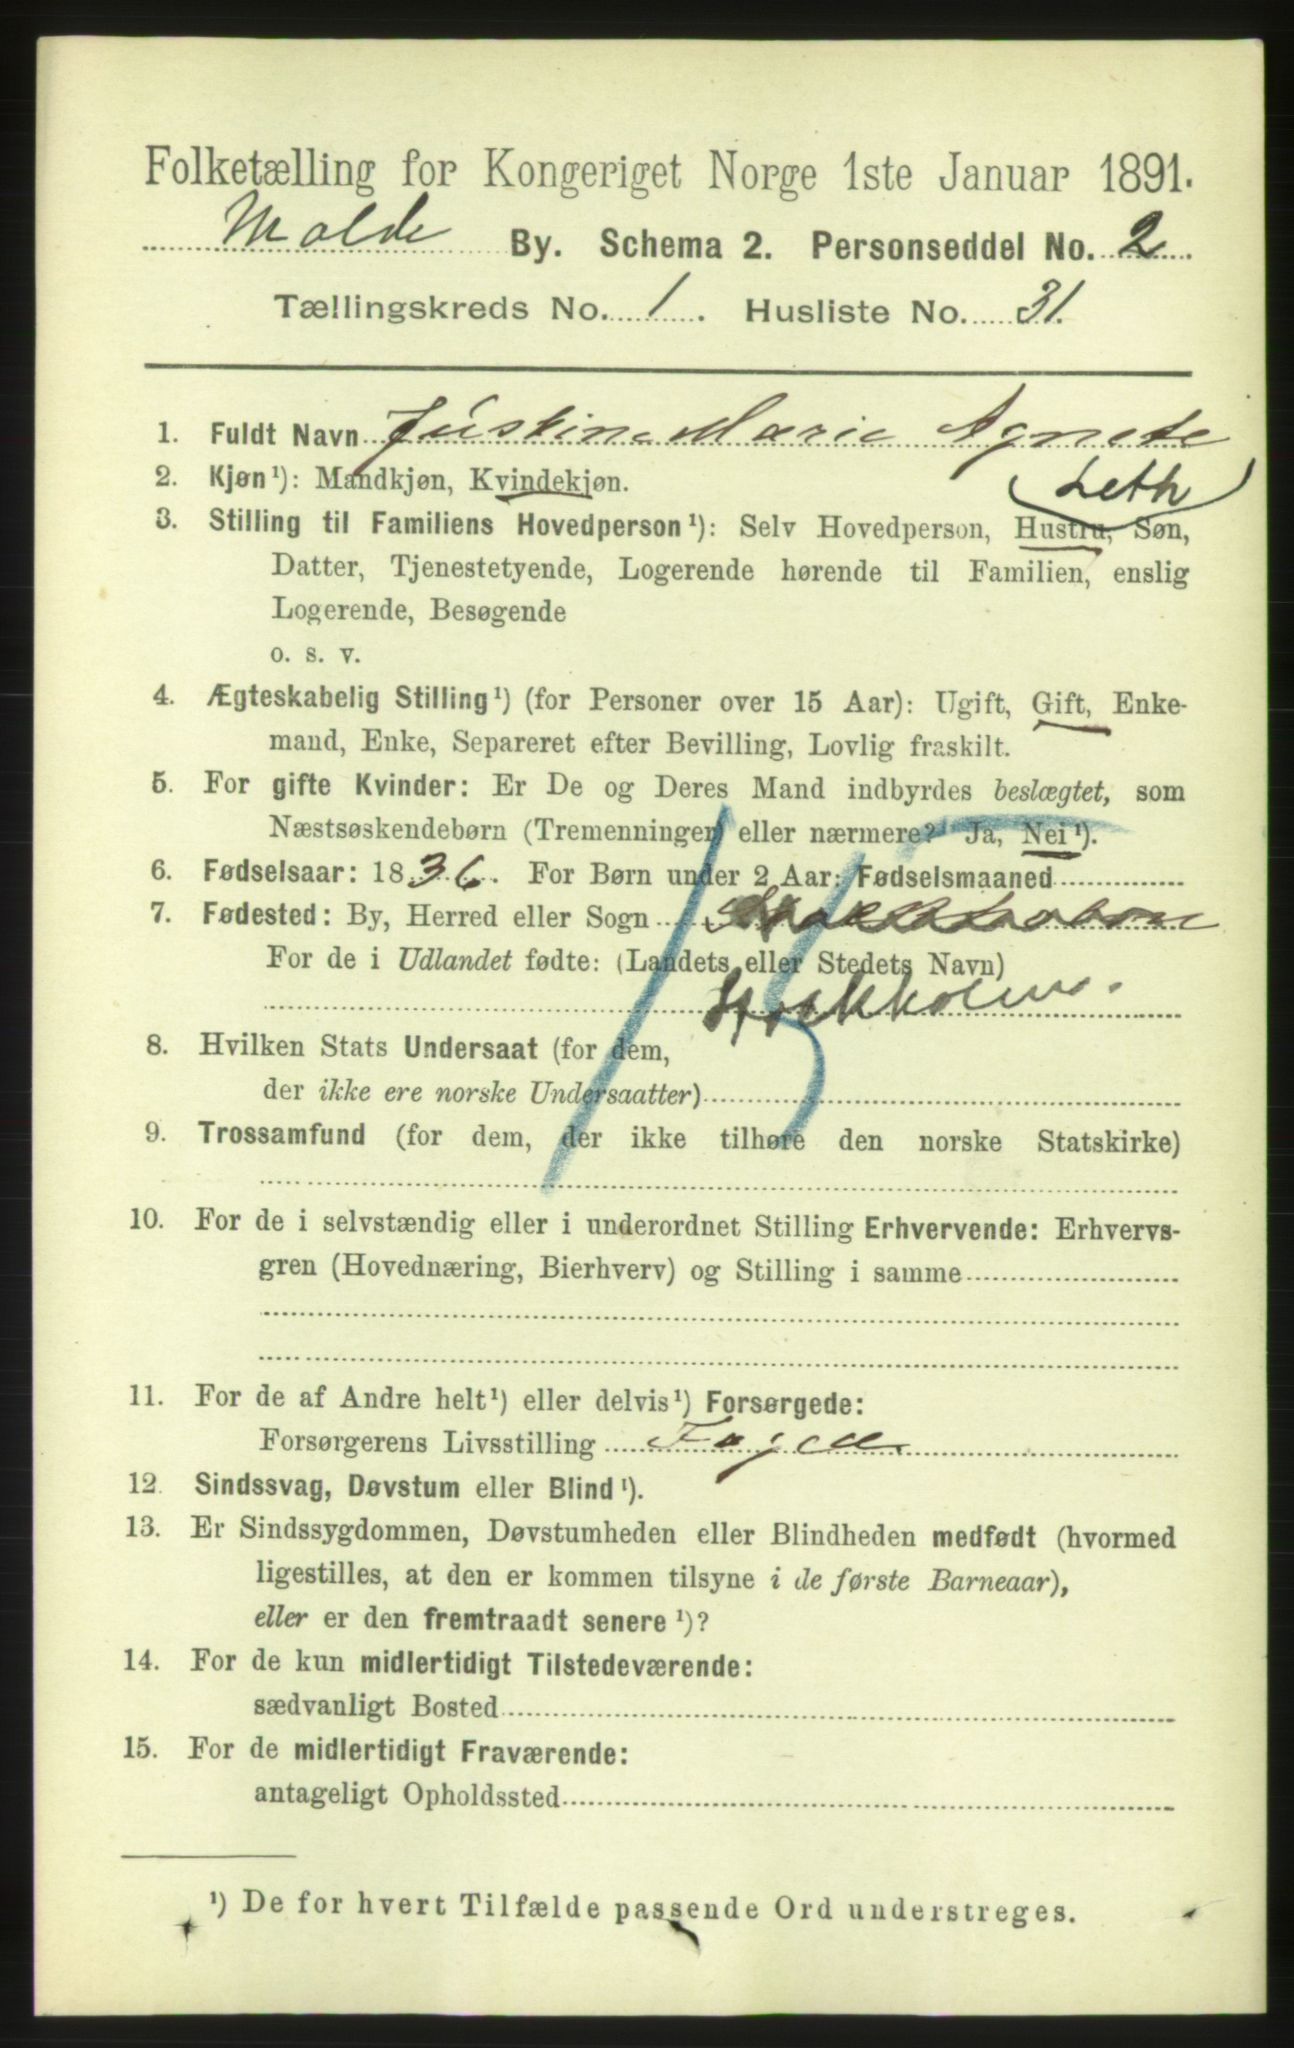 Folketælling for Kongeriget Norge 1ste Januar 1891.
Molde By. Schema 2. Personseddel No. 2
Tællingskreds No. 1. Husliste No. 31.
1. Fuldt Navn Justine Marie Agnete
(Leth)
2. Kjøn¹): Mandkjøn, Kvindekjøn.
3. Stilling til Familiens Hovedperson¹): Selv Hovedperson, Hustru, Søn,
Datter, Tjenestetyende, Logerende hørende til Familien, enslig
Logerende, Besøgende
o. s. v.
4. Ægteskabelig Stilling¹) (for Personer over 15 Aar): Ugift, Gift, Enke-
mand, Enke, Separeret efter Bevilling, Lovlig fraskilt.
5. For gifte Kvinder: Er De og Deres Mand indbyrdes beslægtet, som
Næstsøskendebørn (Tremenninger) eller nærmere? Ja, Nei¹).
6. Fødselsaar: 1836. For Børn under 2 Aar: Fødselsmaaned
7. Fødested: By, Herred eller Sogn
For de i Udlandet fødte: (Landets eller Stedets Navn)
Stockholm.
8. Hvilken Stats Undersaat (for dem,
der ikke ere norske Undersaatter)
9. Trossamfund (for dem, der ikke tilhøre den norske Statskirke)
10. For de i selvstændig eller i underordnet Stilling Erhvervende: Erhvervs-
gren (Hovednæring, Bierhverv) og Stilling i samme
11. For de af Andre helt¹) eller delvis¹) Forsørgede:
Forsørgerens Livsstilling
12. Sindssvag, Døvstum eller Blind¹).
13. Er Sindssygdommen, Døvstumheden eller Blindheden medfødt (hvormed
ligestilles, at den er kommen tilsyne i de første Barneaar),
eller er den fremtraadt senere¹)?
14. For de kun midlertidigt Tilstedeværende:
sædvanligt Bosted
15. For de midlertidigt Fraværende:
antageligt Opholdssted
¹) De for hvert Tilfælde passende Ord understreges.